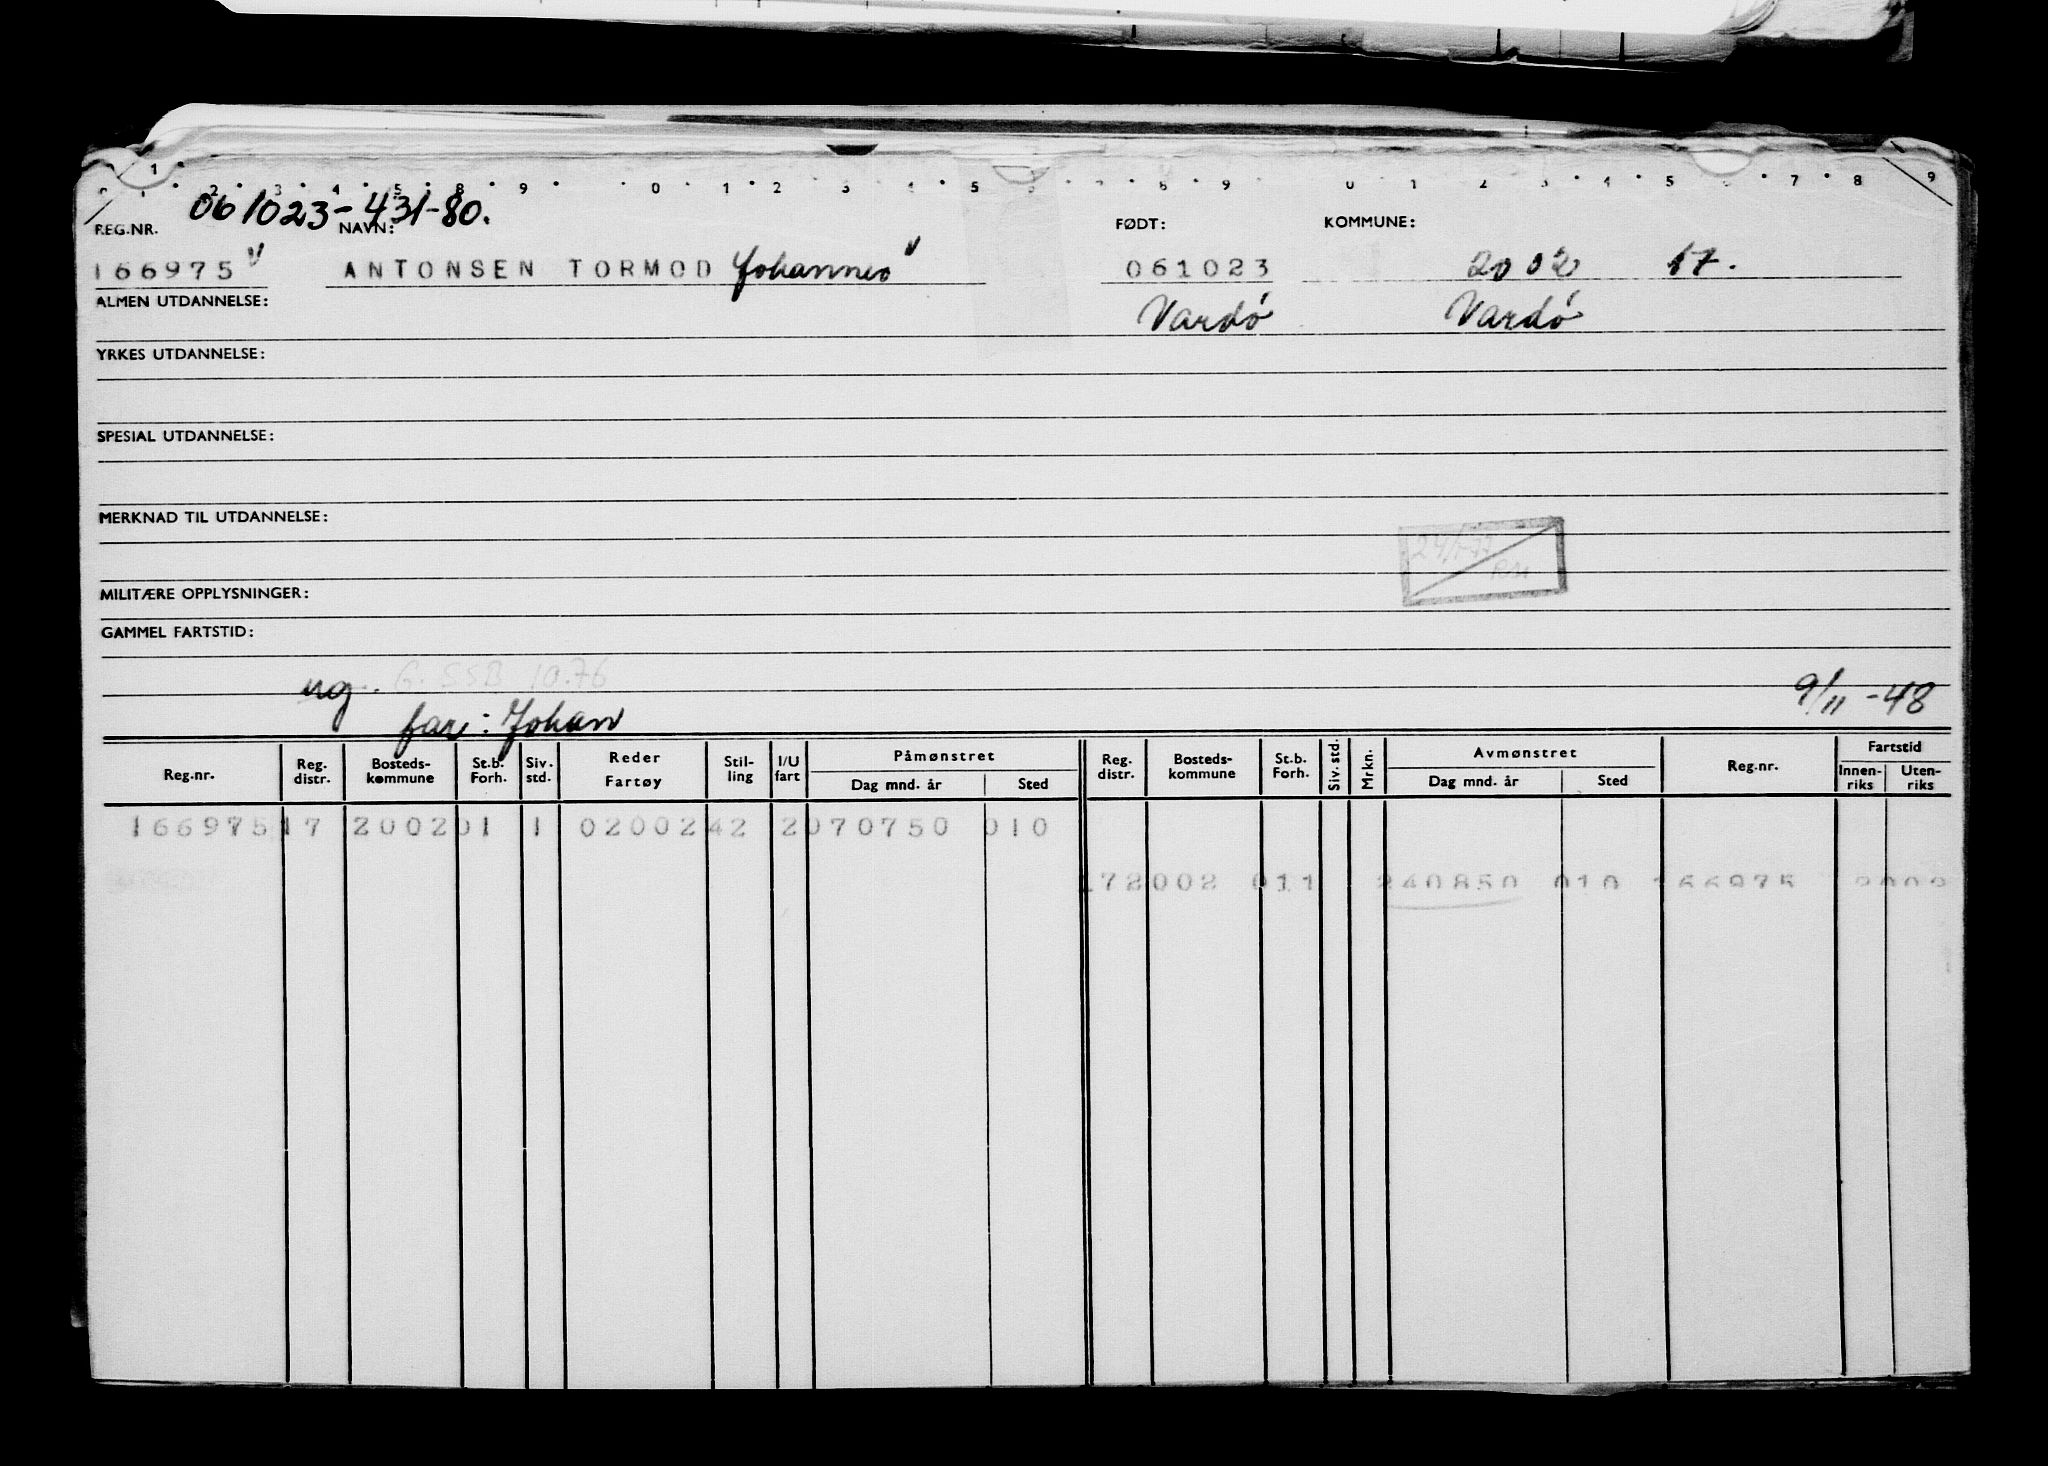 1 2 3 4 5 8 9 0 1 2 3 4 5 8 9 0 1 2 3 4 5 7 8 9
061023-431-80.
REG.NR. NAVN: FØDT: KOMMUNE:
166975 v ANTONSEN TORMOD Johannes v 061023 2002 17.
ALMEN UTDANNELSE: Vardø Vardø
YRKES UTDANNELSE:
SPESIAL UTDANNELSE:
MERKNAD TIL UTDANNELSE:
MILITÆRE OPPLYSNINGER:
GAMMEL FARTSTID:
ug. G. SSB 10.76
9/11 -48
far: Johan
Reg.nr. Reg. distr. Bosteds-kommune St.b. Forh. Siv. std. Reder Fartøy Stil-ling I/U fart Påmønstret Dag mnd. år Sted Reg. distr. Bosteds-kommune St.b. Forh. Siv. std. Mrkn. Avmønstret Dag mnd. år Sted Reg.nr. Fartstid Innen-riks Uten-riks
166975 17 2002 01 1 02002 42 2 070750 010
172002 011 240850 010 166975